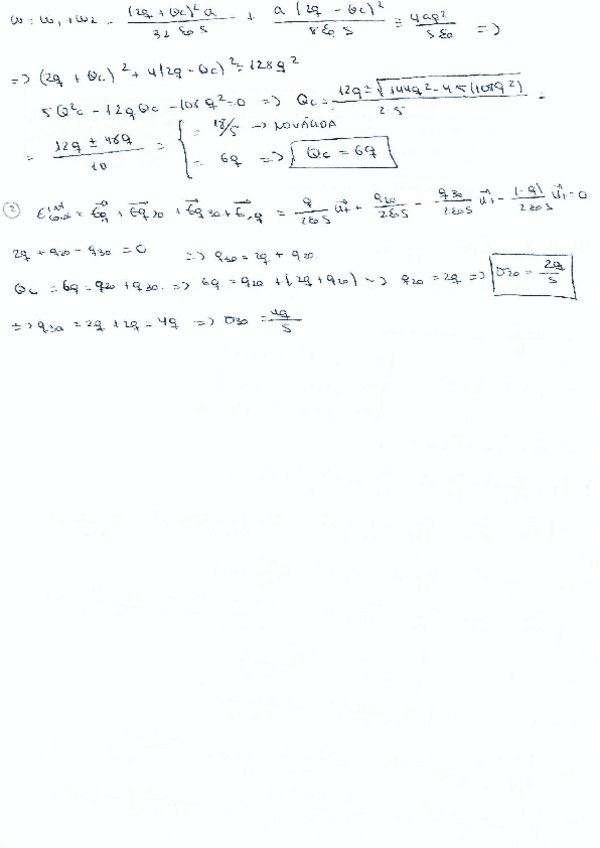 W = W₁ + W₂ = (2q + Qc)² a / 32 ε₀ S + a (2q - Qc)² / 8 ε₀ S = 4aq² / S ε₀ =>
=> (2q + Qc)² + 4(2q - Qc)² = 128q²
5Q²c - 12qQc - 108q² = 0 => Qc = 12q ± √(144q² - 4·5(108q²)) / 2·5 =
= 12q ± 48q / 10 = { = 18/5 -> NO VÁLIDA
= 6q => Qc = 6q
② E⃗ᵢₙₜ = E⃗q + E⃗q20 + E⃗q30 + E⃗-q = q / 2ε₀S u⃗r + q20 / 2ε₀S - q30 / 2ε₀S u⃗r - (-q) / 2ε₀S u⃗r = 0
2q + q20 - q30 = 0 => q30 = 2q + q20
Qc = 6q = q20 + q30 => 6q = q20 + (2q + q20) => q20 = 2q => σ20 = 2q / S
=> q30 = 2q + 2q = 4q => σ30 = 4q / S